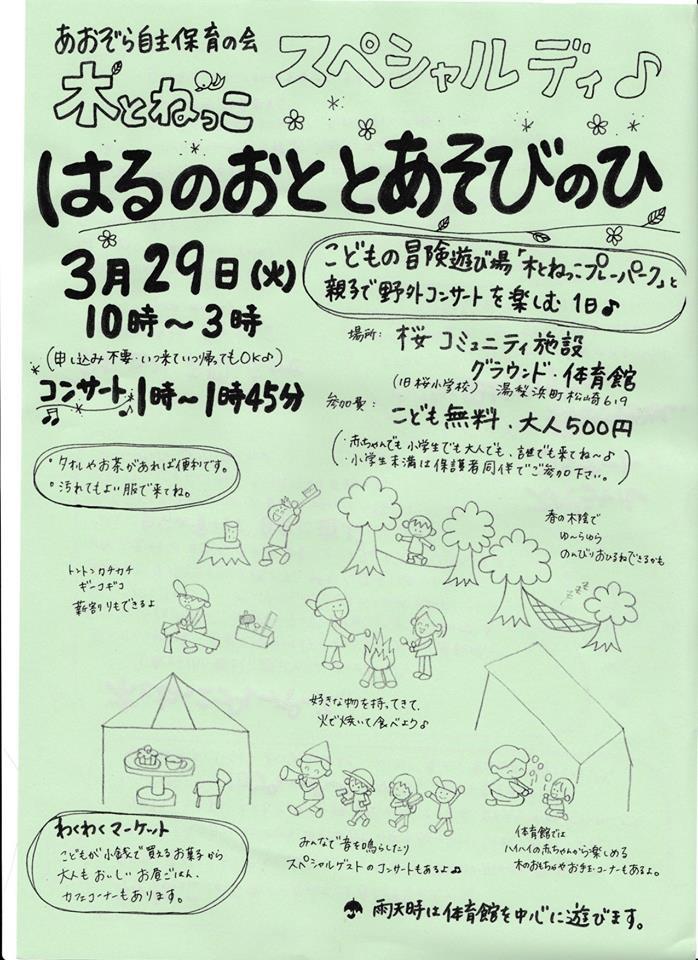 あおぞら自主保育の会
木とねっこ
スペシャルディ♪
はるのおととあそびのひ
3月29日(火)
10時～3時
(申し込み不要・いつ来ていつ帰ってもOK♪)
コンサート 1時～1時45分
こどもの冒険遊び場「木とねっこプレーパーク」と
親子で野外コンサートを楽しむ 1日♪
場所: 桜コミュニティ施設
グラウンド・体育館
(旧桜小学校) 湯梨浜町松崎619
参加費: こども無料・大人500円
(・赤ちゃんでも小学生でも大人でも、誰でも来てね～♪
・小学生未満は保護者同伴でご参加下さい。)
・タオルやお茶があれば便利です。
・汚れてもよい服で来てね。
春の木陰で
ゆ～らゆら
のんびりおひるねできるかも
zzz
トントンカチカチ
ギーコギコ
薪割りもできるよ
好きな物を持ってきて、
火で焼いて食べよう♪
わくわくマーケット
こどもが小銭で買えるお菓子から
大人もおいしいお昼ごはん、
カフェコーナーもあります。
みんなで音を鳴らしたり
スペシャルゲストのコンサートもあるよ♫
体育館では
ハイハイの赤ちゃんから楽しめる
木のおもちゃやお手玉コーナーもあるよ。
雨天時は体育館を中心に遊びます。